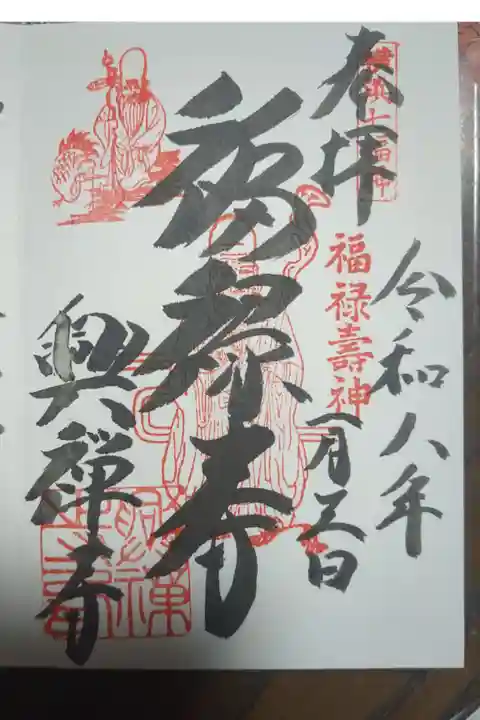 横浜七福神
奉拝
令和八年
一月三日
福禄壽神
福禄寿
興禅寺